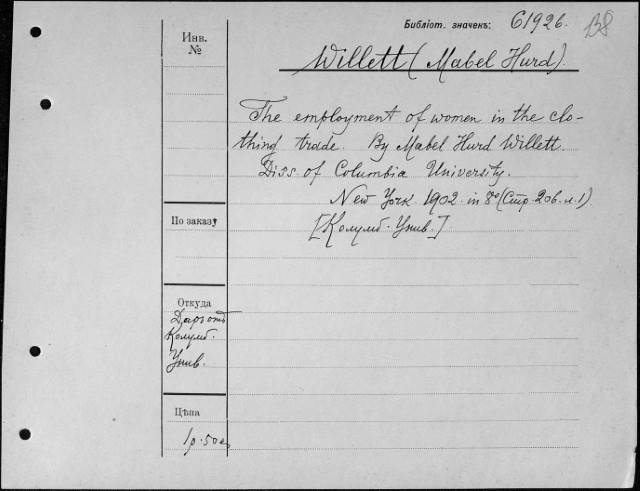 Библіот. значекъ: C1926.
B8
Инв.
№
Willett (Mabel Hurd).
The employment of women in the clo-
thing trade. By Mabel Hurd Willett.
Diss. of Columbia University.
New York 1902. in 8º (Стр. 206. л. 1).
[Колумб. Унив.]
По заказу
Откуда
Даръ отъ
Колумб.
Унив.
Цѣна
1р. 50к